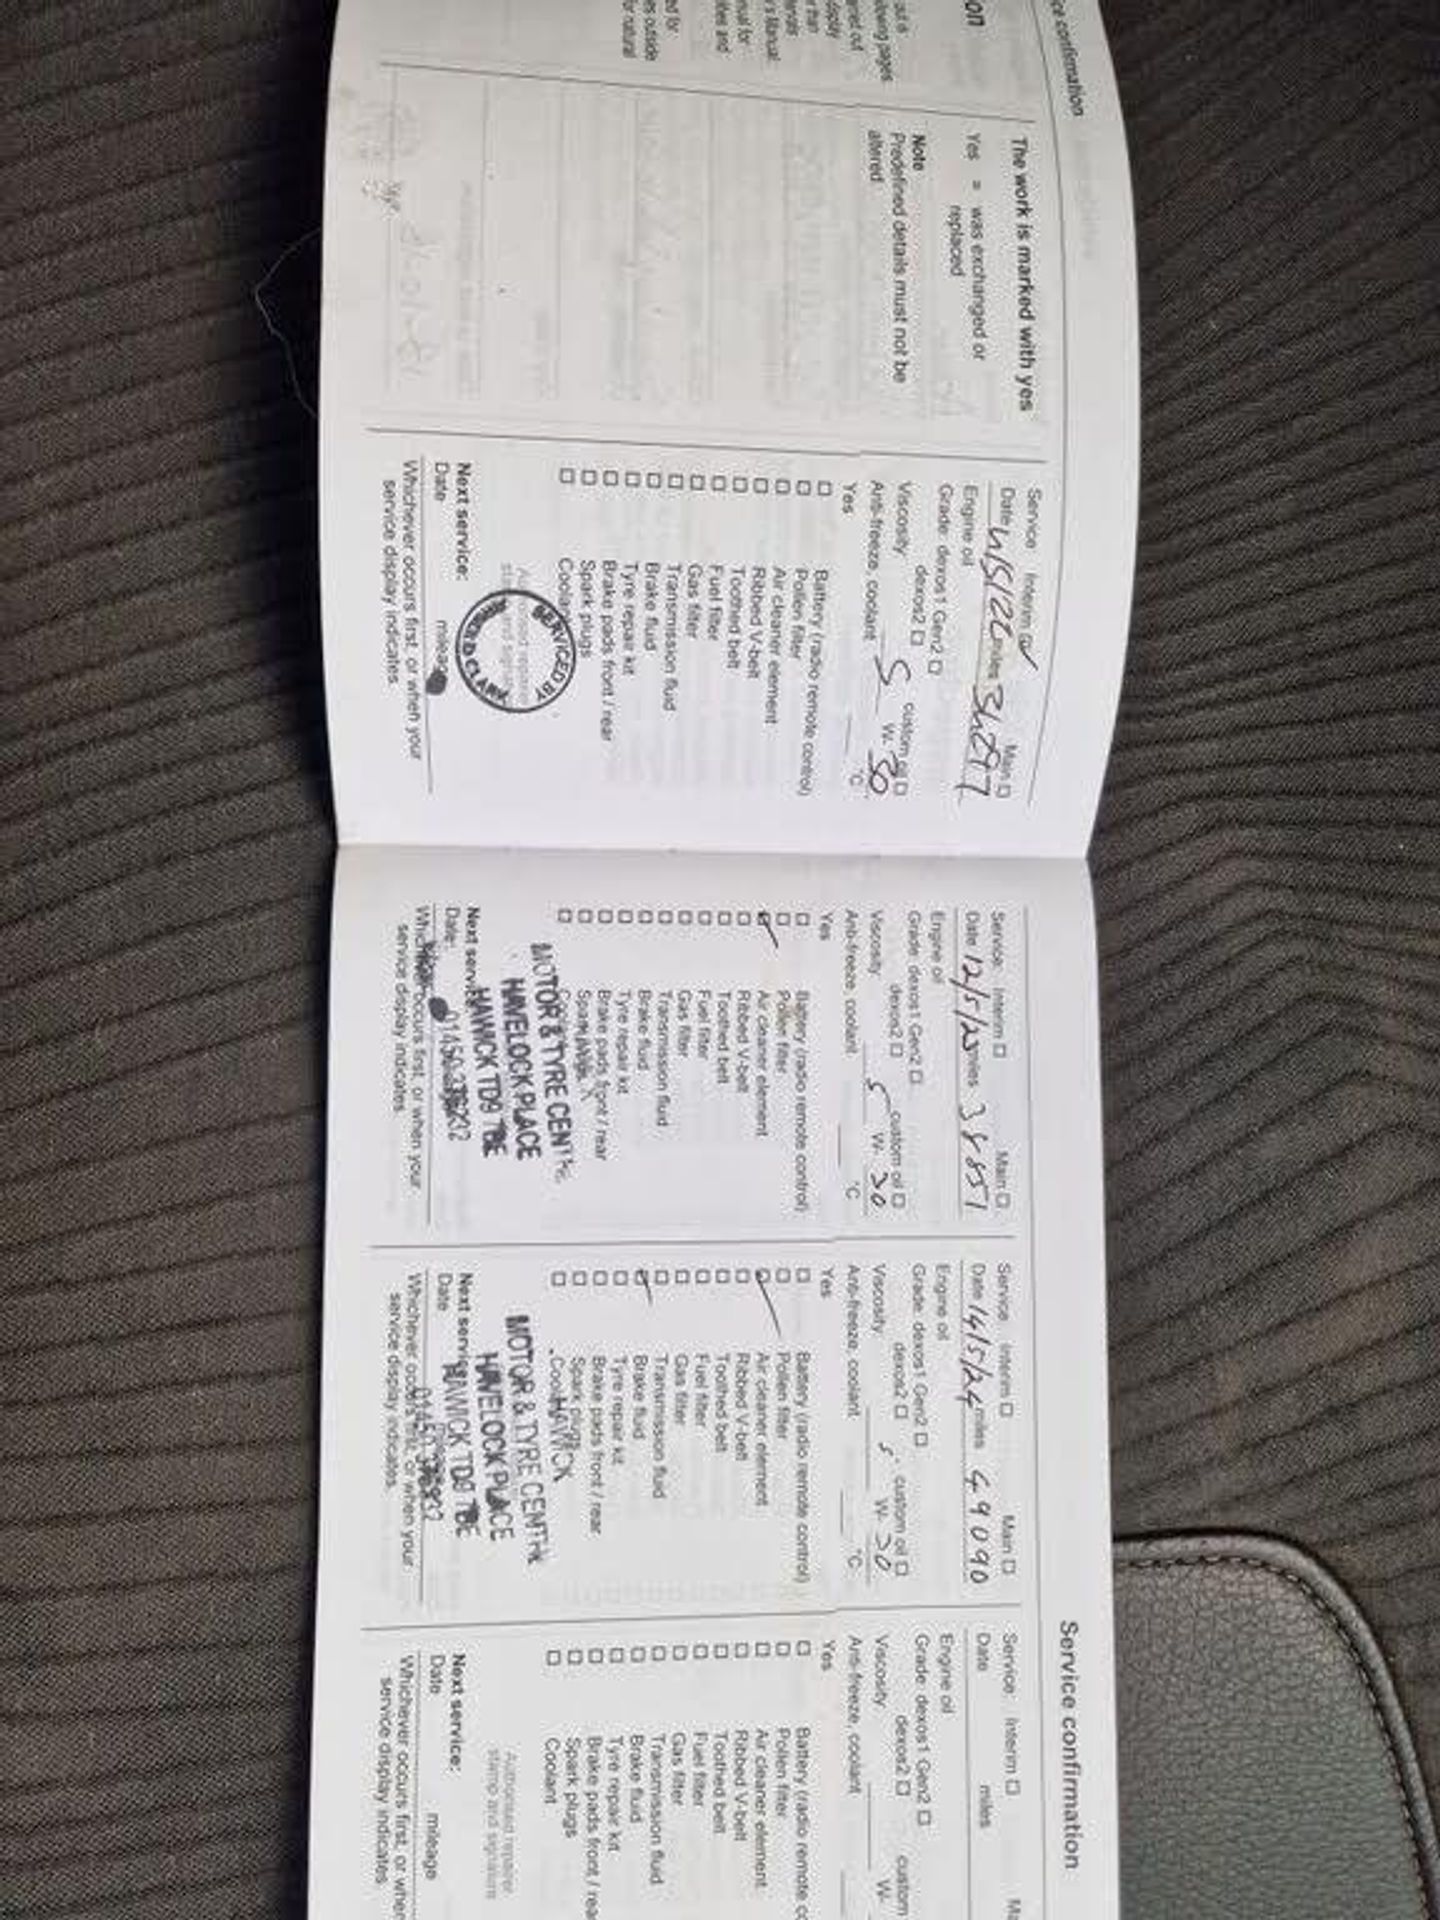 ce confirmation
on
out is
llowing pages
arried out
supply
r than
fferents
's Manual.
nual for
ities and
ed by
es outside
for natural
The work is marked with yes
Yes = was exchanged or
replaced
Note
Predefined details must not be
altered
Service Interim Main
Date miles
Engine oil
Grade: dexos1 Gen2
dexos2 custom oil
Viscosity 5 W- 30
Anti-freeze, coolant °C
Yes
Battery (radio remote control)
Pollen filter
Air cleaner element
Ribbed V-belt
Toothed belt
Fuel filter
Gas filter
Transmission fluid
Brake fluid
Tyre repair kit
Brake pads front / rear
Spark plugs
Coolant
SERVICED BY
Next service:
Date mileage
Whichever occurs first, or when your
service display indicates.
Service: Interim Main
Date 12/5/23 miles 38851
Engine oil
Grade: dexos1 Gen2
dexos2 custom oil
Viscosity 5 W- 30
Anti-freeze, coolant °C
Yes
Battery (radio remote control)
Pollen filter
Air cleaner element
Ribbed V-belt
Toothed belt
Fuel filter
Gas filter
Transmission fluid
Brake fluid
Tyre repair kit
Brake pads front / rear
Spark plugs
MOTOR & TYRE CENTRE
HAVELOCK PLACE
HAWICK TD9 7BE
Next service:
Date:
Whichever occurs first, or when your
service display indicates
Service confirmation
Service Interim Main
Date 14/5/24 miles 49090
Engine oil
Grade: dexos1 Gen2
dexos2 custom oil
Viscosity 5 W- 30
Anti-freeze, coolant °C
Yes
Battery (radio remote control)
Pollen filter
Air cleaner element
Ribbed V-belt
Toothed belt
Fuel filter
Gas filter
Transmission fluid
Brake fluid
Tyre repair kit
Brake pads front / rear
Spark plugs
Coolant HAWICK
MOTOR & TYRE CENTRE
HAVELOCK PLACE
HAWICK TD9 7BE
Next service:
Date
Whichever occurs first, or when your
service display indicates.
Service: Interim Ma
Date miles
Engine oil
Grade: dexos1 Gen2
dexos2 custom
Viscosity W-
Anti-freeze, coolant
Yes
Battery (radio remote co
Pollen filter
Air cleaner element
Ribbed V-belt
Toothed belt
Fuel filter
Gas filter
Transmission fluid
Brake fluid
Tyre repair kit
Brake pads front / rear
Spark plugs
Coolant
Authorised repairer
stamp and signature
Next service:
Date mileage
Whichever occurs first, or when
service display indicates